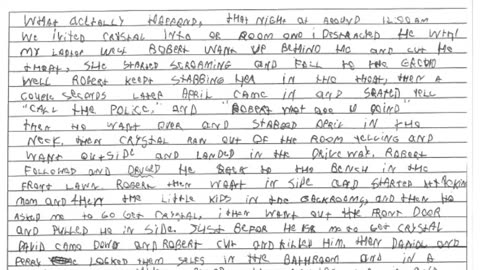 WHAT ACTUALLY HAPPEND, THAT NIGHT AT AROUND 11:50am
WE IVITED CRYSTAL INTO OR ROOM AND I DESTRACTED HE WITH
MY LAPTOP WILL ROBERT WANT UP BEHIND HE AND CUT HE
THROT, SHE STARTED SCREAMING AND FALL TO THE GROUND
WELL ROBERT KEPT STABBING HER IN THE THROT, THEN A
COUPLE SECONDS LATER APRIL CAME IN AND YELL
"CALL THE POLICE," AND "ROBERT WHAT ARE U DOIND"
THEN HE WANT OVER AND STABBED APRIL IN THE
NECK. THEN CRYSTAL RAN OUT OF THE ROOM YELLING AND
WANT OUTSIDE AND LANDED IN THE DRIVE WAY. ROBERT
FOLLOWED AND HE BACK TO THE BENCH IN THE
FRONT LAWN. ROBERT THEN WENT IN SIDE AND STARTED ATTACKING
MOM AND THEN THE LITTLE KIDS IN THE BACKROOMS, AND THEN HE
ASKED ME TO GO GET CRYSTAL, I THEN WANT OUT THE FRONT DOOR
AND PULLED HE IN SIDE. JUST BEFOR HE ME TO GET CRYSTAL
DAVID CAME DOWN AND ROBERT CUT AND KILLED HIM, THEN DANIEL AND
LOCKED THEM SELFS IN THE BATHROOM AND IN A